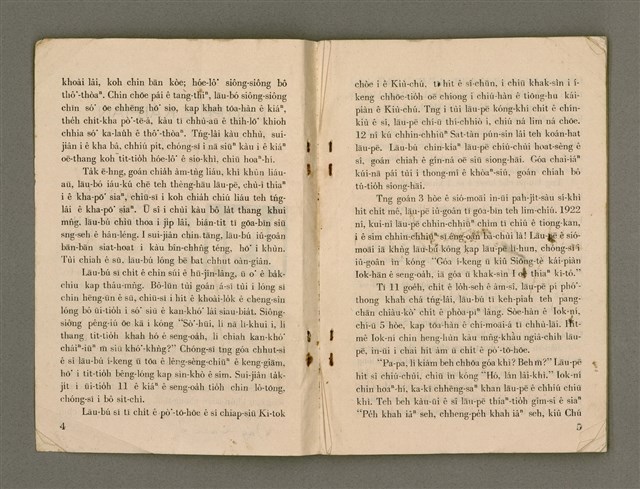 khoài lâi, koh chin bān kòe; hóe-lô͘ siông-siông bô
thô͘-thòaⁿ. Chin chōe pái ê tang-thiⁿ, lāu-bú siông-siông
chin só͘ ōe chhēng hō͘ sio, kap khah tōa-hàn ê kiáⁿ,
theh chit-kha pò͘-tē-á, kàu tī chhú-aū ê thih-lō͘ khioh
chhia só͘ ka-laùh ê thô͘-thòaⁿ. Tńg-lâi kàu chhù, sui-
jiân i ê kha bâ, chhiú pit, chóng-sī i nā siūⁿ kàu i ê kiáⁿ
oē-thang koh tit-tio̍h hóe-lô͘ ê sio-khì, chiū hoaⁿ-hí.
Ta̍k ê-hng, goán chiáh àm-tńg liáu, khì khùn liáu-
aū, lāu-bú iáu-kú chē teh thèng-hāu lāu-pē, chū-i thiaⁿ
i ê kha-pō͘ siaⁿ, chiū-sī i koh chiah chiú liáu teh tńg-
lâi ê kha-pō͘ siaⁿ. Ū sî i chùi kàu bô la̍t thang khui
mn̂g, lāu-bú chiū thoa i ji̍p lâi, bián-tit tī góa-bīn siū
sng-seh ê hân-léng. I sui-jiân chin tāng, lāu-bú iû-goân
bān-bān siat-hoat i kàu bîn-chhn̂g téng, hō͘ i khùn.
Tùi chiah ê sū, lāu-bú lóng bē bat chhut oàn-giân.
Lāu-bú sī tī chit ê chin súi ê hū-jîn-lâng, ū o͘ ê ba̍k-
chiu kap thâu-mn̂g. Bô-lūn túi goán á-sī túi i lóng sī
chin hêng-ūn ê sū, chiū-sī i hit ê khoài-lo̍k ê cheng-sîn
lóng bô ūi-tio̍h i só͘ siū ê kan-khó͘ lâi siau-bia̍t. Siông-
siông pêng-iú ōe kā i kóng "Só͘-hūi, lí nā lī-khui i, lí
thang tit-tio̍h khah hó ê seng-oa̍h, lí chiah kan-khó͘
cháiⁿ-iūⁿ m̄ siū khó͘-khǹg?" Chóng-sī tng góa chhut-sì
ê sî lāu-bú í-keng ū tōa ê lêng-sèng-chiūⁿ ê keng-giām,
hō͘ i tit-tio̍h bêng-lóng kap sin-khò ê sim. Sui-jiân ta̍k-
ji̍t i ūi-tio̍h 11 ê kiáⁿ ê seng-oa̍h tio̍h chin lô-tōng,
chóng-sī i bô sit-chì.
Lāu-bú sī tī chit ê pò͘-tō-hōe ê sî chiap-siū Ki-tok
4
chòe i ê Kiù-chú. tī hit ê sî-chūn, i chiū khak-sìn i í-
keng chhōe-tio̍h oē chiong i chiū-hàn ê tiòng-hu kái-
piàn ê Kiù-chú. Tng i tùi lāu-pē kóng-khí chit ê chín-
kiù ê sî, lāu-pē chi-ū thí-chhiò i, chiū ná lím ná chōe.
12 nî kú chhin-chhiūⁿ Sat-tàn pún-sin lâi teh koán-hat
lāu-pē. Lāu-bú chin-kiaⁿ lāu-pē chiū-chùi hoat-sêng ê
sî, goán chiah ê gín-ná oē siū siong-hāi. Góa chai-iáⁿ
kúi-nā pái tùi i thong-mī ê khòaⁿ-siú, goán chiah bô
tú-tio̍h siong-hāi.
Tng goán 3 hòe ê sió-moāi in-ūi pah-ji̍t-sàu sí-khì
hit chi̍t mê, lāu-pē iû-goân tī góa-bīn teh lim-chiú. 1922
nî, kui-nî lāu-pē chhin-chhiūⁿ chim tī chiú ê tiong-kan,
i ê sìm chhin-chhiūⁿ sī êng-oán bâ-chùi lâ! Lāu-pē ê sió-
moāi lâi khǹg lāu-bú kóng kap lāu-pē lī-hun, chóng-sī i
iû-goân ìn kóng "Góa í-keng ū kiû Siōng-tè kái-piàn
Iok-hān ê seng-oa̍h, iā góa ū khak-sìn I oē thiaⁿ kî-tó."
Tī 11 goe̍h, chi̍t ê lo̍h-seh ê ám-sî, lāu-pē pí pôo͘-
thong khah chá tńg-lâi, lāu-bú tī keh-piah teh pang-
chān chiàu-kò͘ chi̍t ê phòa-pīⁿ lâng. Sòe-hàn ê Iok-ní,
chū 5 hòe, kap tōa-hàn ê chí-moāi-á tī chhù-lâi. Hit-
mê Iok-ní chin heng-hún kàu mn̂g-khàu ngiâ-chih lāu-
pē, in-ūi i chai hit ám ū chi̍t ê pò͘-tō-hōe.
"Pa-pa, lí kiám beh chhōa góa khì? Beh m̄?" Lāu-pē
hit sî chiú-chùi, chiū ìn kóng "Hó, lán lâi-khì." Iok-ní
chin hoaⁿ-hí, ka-kī chhēng-saⁿ khan lāu-pē ê chhiú chhiū
khì. Teh beh kàu-ūi ê sî lāu-pē thiaⁿ-tio̍h gîm-si ê siaⁿ
"Pe̍h khah iâⁿ seh, chheng-pe̍h khah iâⁿ seh, kiû Chú
5